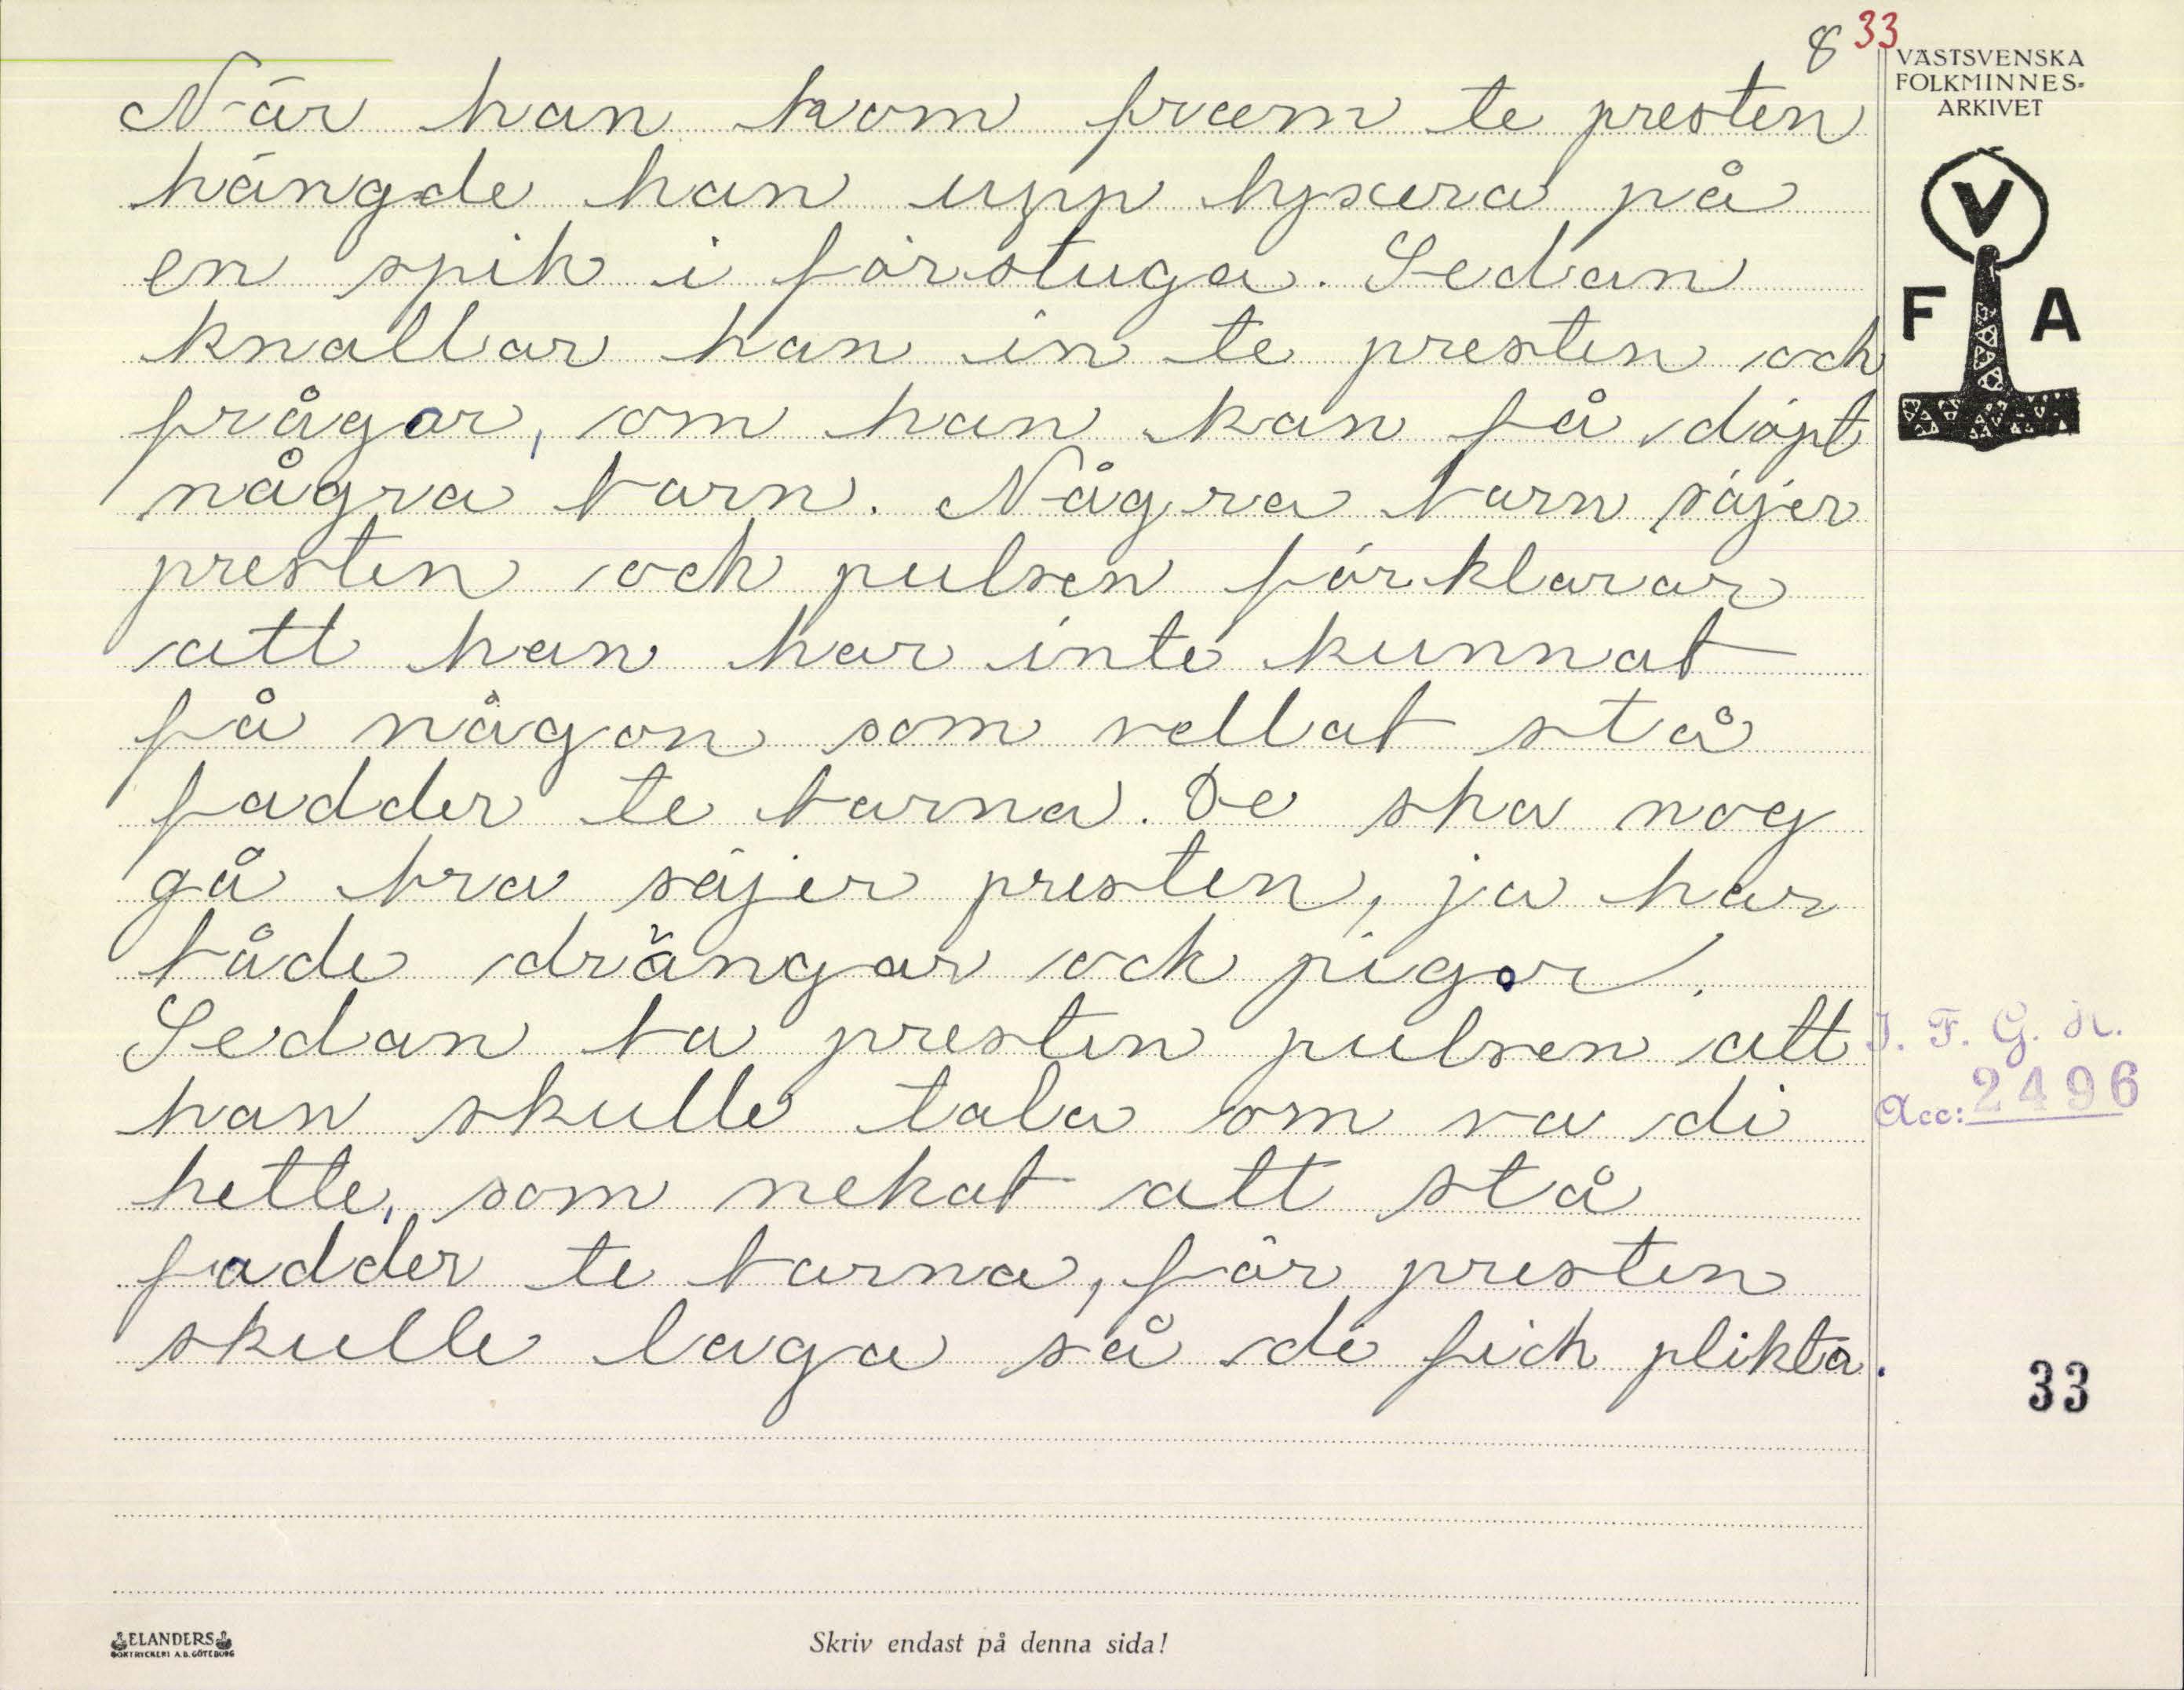 8 33
VÄSTSVENSKA
FOLKMINNES-
ARKIVET
V
F A
När han kom fram te presten
hängde han upp byxera på
en spik i förstuga. Sedan
knallar han in te presten och
frågar, om han kan få döpt
några barn. Några barn säjer
presten och pulsen förklarar
att han har inte kunnat
få någon som vellat stå
fadder te barna. De ska nog
gå bra säjer presten, ja har
både drängar och pigor.
Sedan ba presten pulsen att
han skulle tala om va di
hette, som nekat att stå
fadder te barna, för presten
skulle laga så di fick plikta.
I. F. G. H.
Acc: 2496
33
ELANDERS
BOKTRYCKERI A.B. GÖTEBORG
Skriv endast på denna sida!